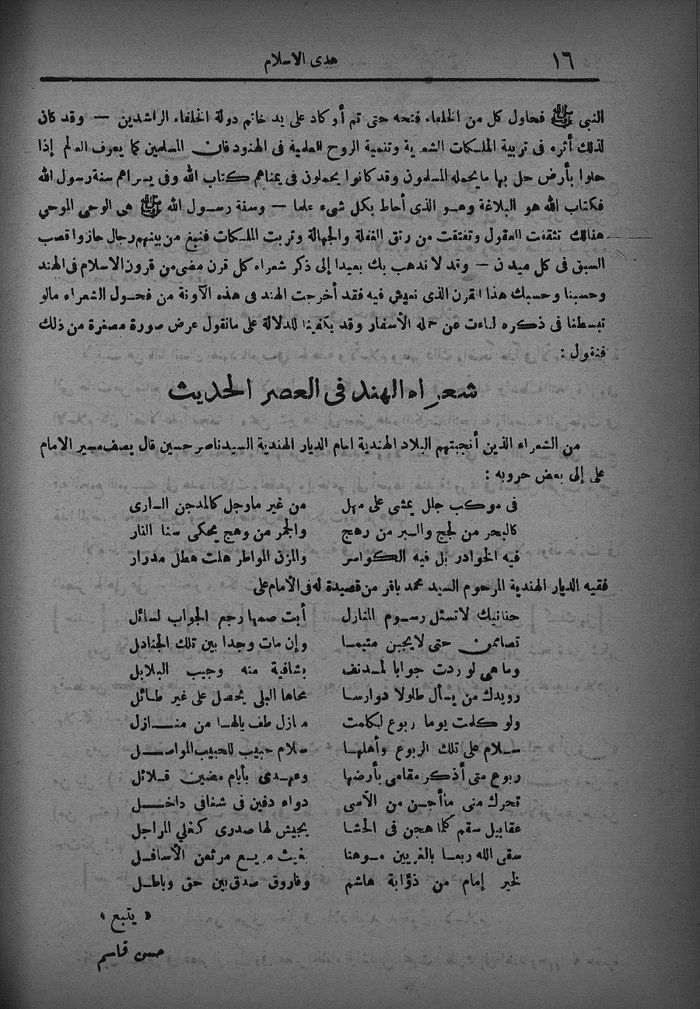 ١٦
هدى الاسلام
النبي ﷺ فحاول كل من الخلفاء فتحه حتى تم أو كاد على يد خاتم دولة الخلفاء الراشدين — وقد كان
لذلك أثره فى تربية الملكات الشعرية وتنمية الروح العلمية فى الهنود فان المسلمين كما يعرف العالم إذا
حلوا بأرض حل بها ما يحمله المسلمون وقد كانوا يحملون فى يمناهم كتاب الله وفى يسراهم سنة رسول الله
فكتاب الله هو البلاغة وهو الذى أحاط بكل شىء علما — وسنة رسول الله ﷺ هى الوحى الموحي
هنالك تثقفت العقول وتفتقت من رتق الغفلة والجهالة وتربت الملكات فنبغ من بينهم رجال حازوا قصب
السبق فى كل ميدان — وقد لا نذهب بك بعيدا إلى ذكر شعراء كل قرن مضى من قرون الاسلام فى الهند
وحسبنا وحسبك هذا القرن الذى نعيش فيه فقد أخرجت الهند فى هذه الآونة من فحول الشعراء مالو
تبسطنا فى ذكره لناءت عن حمله الأسفار وقد يكفينا للدلالة على مانقول عرض صورة مصغرة من ذلك
فنقول :
شعراء الهند فى العصر الحديث
من الشعراء الذين أنجبتهم البلاد الهندية امام الديار الهندية السيد ناصر حسين قال يصف مسير الامام
على إلى بعض حروبه :
فى موكب جلل يمشى على مهل من غير مارجل كالمدجن السارى
كالبحر من لجج والبر من رهج والجمر من وهج يحكى سنا النار
فيه الخوادر بل فيه الكواسر والمزن المواطر هلت هطل مدرار
فقيه الديار الهندية المرحوم السيد محمد باقر من قصيدة له فى الأمام على
حنانيك لا تسئل رسوم المنازل أبت صمها رجع الجواب لسائل
تصاممن حتى لا يجبن متيما وإن مات وجدا بين تلك الجنادل
وما هى لو ردت جوابا لمدنف بشافية منه وجيب البلابل
رويدك من يسأل طلولا دوارسا محاها البلى يحصل على غير طائل
ولو كلمت يوما ربوع لكلمت منازل طف يالها من منازل
سلام على تلك الربوع وأهلها سلام حبيب للحبيب المواصل
ربوع متى أذكر مقامى بأرضها وعهدى بأيام مضين قلائل
تحرك منى ماأجن من الأسى دواء دفين فى شغافى داخل
عقابيل سقم كلما هجن فى الحشا يجيش لها صدرى كغلي المراجل
سقى الله ربعا بالغريين موهنا بغيث مريع مرثعن الأسافل
لخير إمام من ذؤابة هاشم وفاروق صدق بين حق وباطل
« يتبع »
حسن قاسم